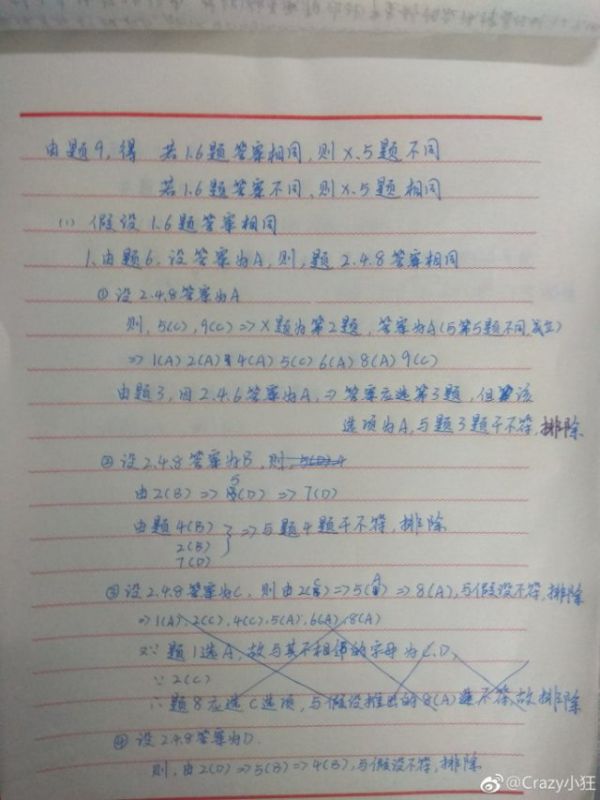 由题9,得 若1.6题答案相同,则X.5题不同
若1.6题答案不同,则X.5题相同
(1) 假设1.6题答案相同
1.由题6,设答案为A,则,题2.4.8答案相同
①设2.4.8答案为A
则,5(C),9(C)=>X题为第2题,答案为A(与第5题不同,成立)
=>1(A)2(A)4(A)5(C)6(A)8(A)9(C)
由题3,因2.4.6答案为A,=>答案应选第3题,但该
选项为A,与题3题干不符,排除
②设2.4.8答案为B,则
由2(B)=>5(D)=>7(D)
由题4(B)
2(B)
7(D)
=>与题4题干不符,排除
③设2.4.8答案为C,则由2(C)=>5(A)=>8(A),与假设不符,排除
=>1(A).2(C).4(C).5(A).6(A).8(A)
又∵题1选A,故与其不相邻的字母为C.D,
∵2(C)
∴题8应选C选项,与假设推出的8(A)不符,故排除
④设2.4.8答案为D.
则,由2(D)=>5(B)=>4(B),与假设不符,排除
@Crazy小狂